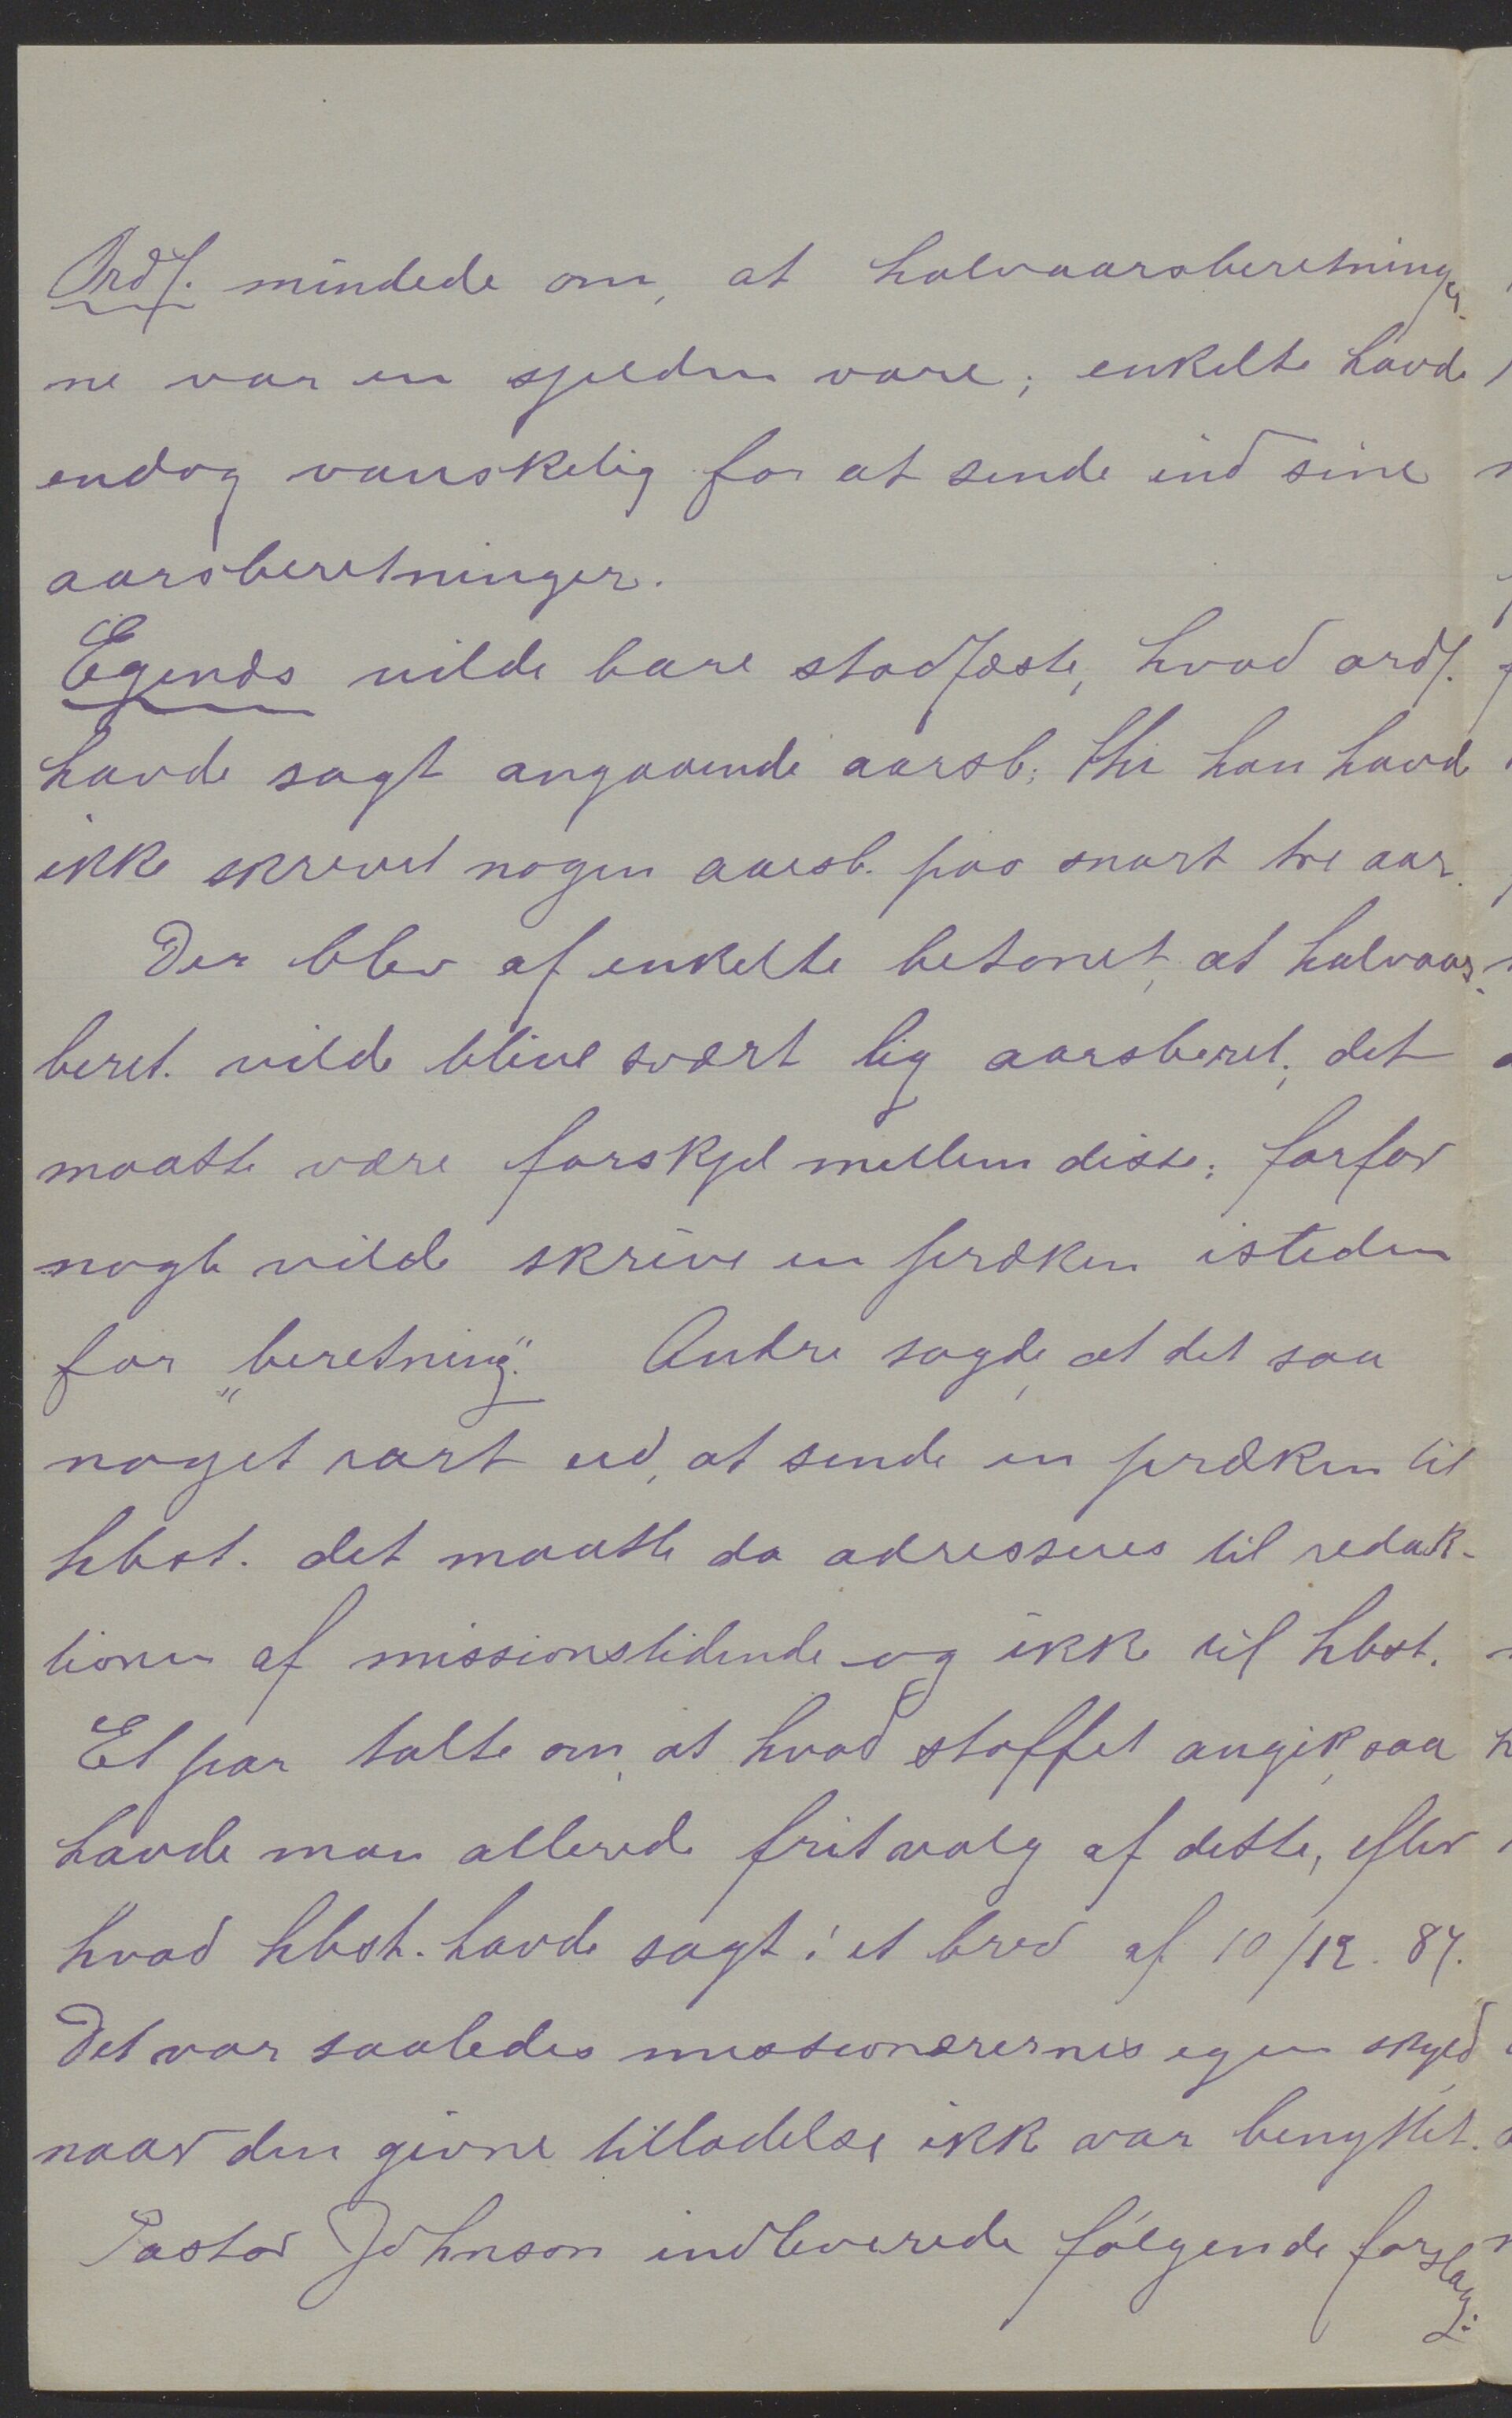 Ordf. mindede om, at halvaarsberetninger-
ne var en sjelden vare; enkelte havde
endog vanskelig for at sende ind sine
aarsberetninger.
Egenæs vilde bare stadfæste, hvad ordf.
havde sagt angaaende aarsb; thi han havde
ikke skrevet nogen aarsb. paa snart tre aar.
Der blev af enkelte betonet, at halvaars-
beret. vilde blive svært lig aarsberet; det
maatte være forskjel mellem disse; forfor
nogle vilde skrive en præken isteden
for "beretning". Andre sagde, at det saa
noget rart ud, at sende en præken til
hbst. det maatte da adresseres til redak-
tionen af missionstidende og ikke til hbst.
Et par talte om, at hvad stoffet angik, saa
havde man allerede frit valg af dette, efter
hvad hbst. havde sagt i et brev af 10/12. 87.
Det var saaledes missionærernes egen skyld,
naar den givne tilladelse ikke var benyttet.
Pastor Johnson indleverede følgende forslag: